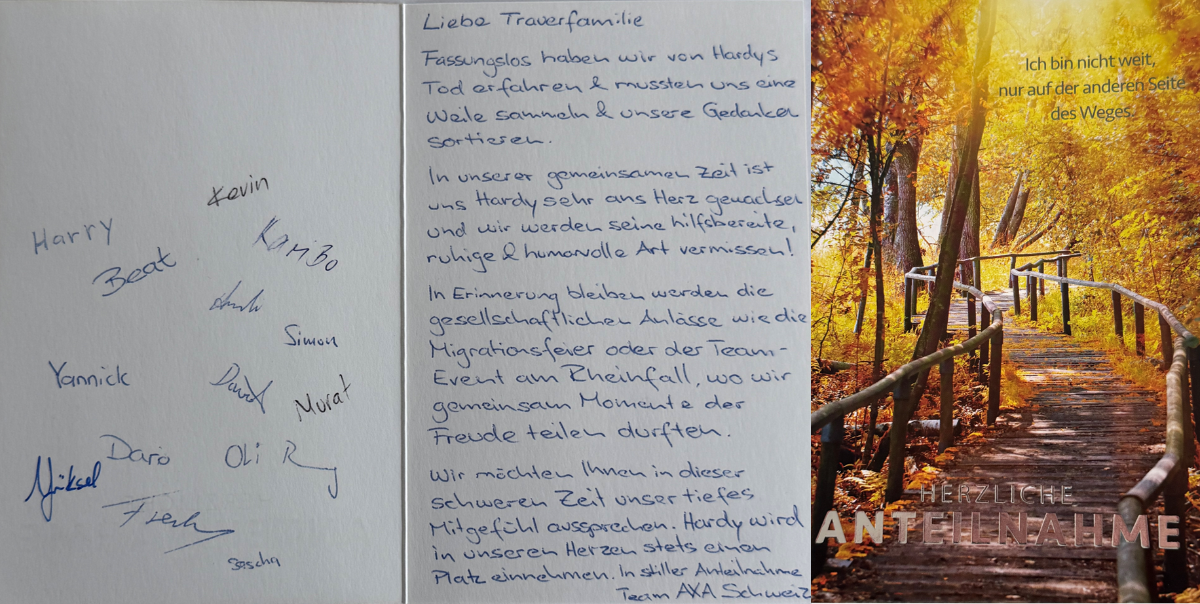 Kevin
Harry
KariBo
Beat
Simon
Yannick
David
Murat
Dario
Oli R
Yüksel
Sascha
Liebe Trauerfamilie
Fassungslos haben wir von Hardys
Tod erfahren & mussten uns eine
Weile sammeln & unsere Gedanken
sortieren.
In unserer gemeinsamen Zeit ist
uns Hardy sehr ans Herz gewachsen
und wir werden seine hilfsbereite,
ruhige & humorvolle Art vermissen!
In Erinnerung bleiben werden die
gesellschaftlichen Anlässe wie die
Migrationsfeier oder der Team-
Event am Rheinfall, wo wir
gemeinsam Momente der
Freude teilen durften.
Wir möchten Ihnen in dieser
schweren Zeit unser tiefes
Mitgefühl aussprechen. Hardy wird
in unseren Herzen stets einen
Platz einnehmen. In stiller Anteilnahme
Team AXA Schweiz
Ich bin nicht weit,
nur auf der anderen Seite
des Weges.
HERZLICHE
ANTEILNAHME